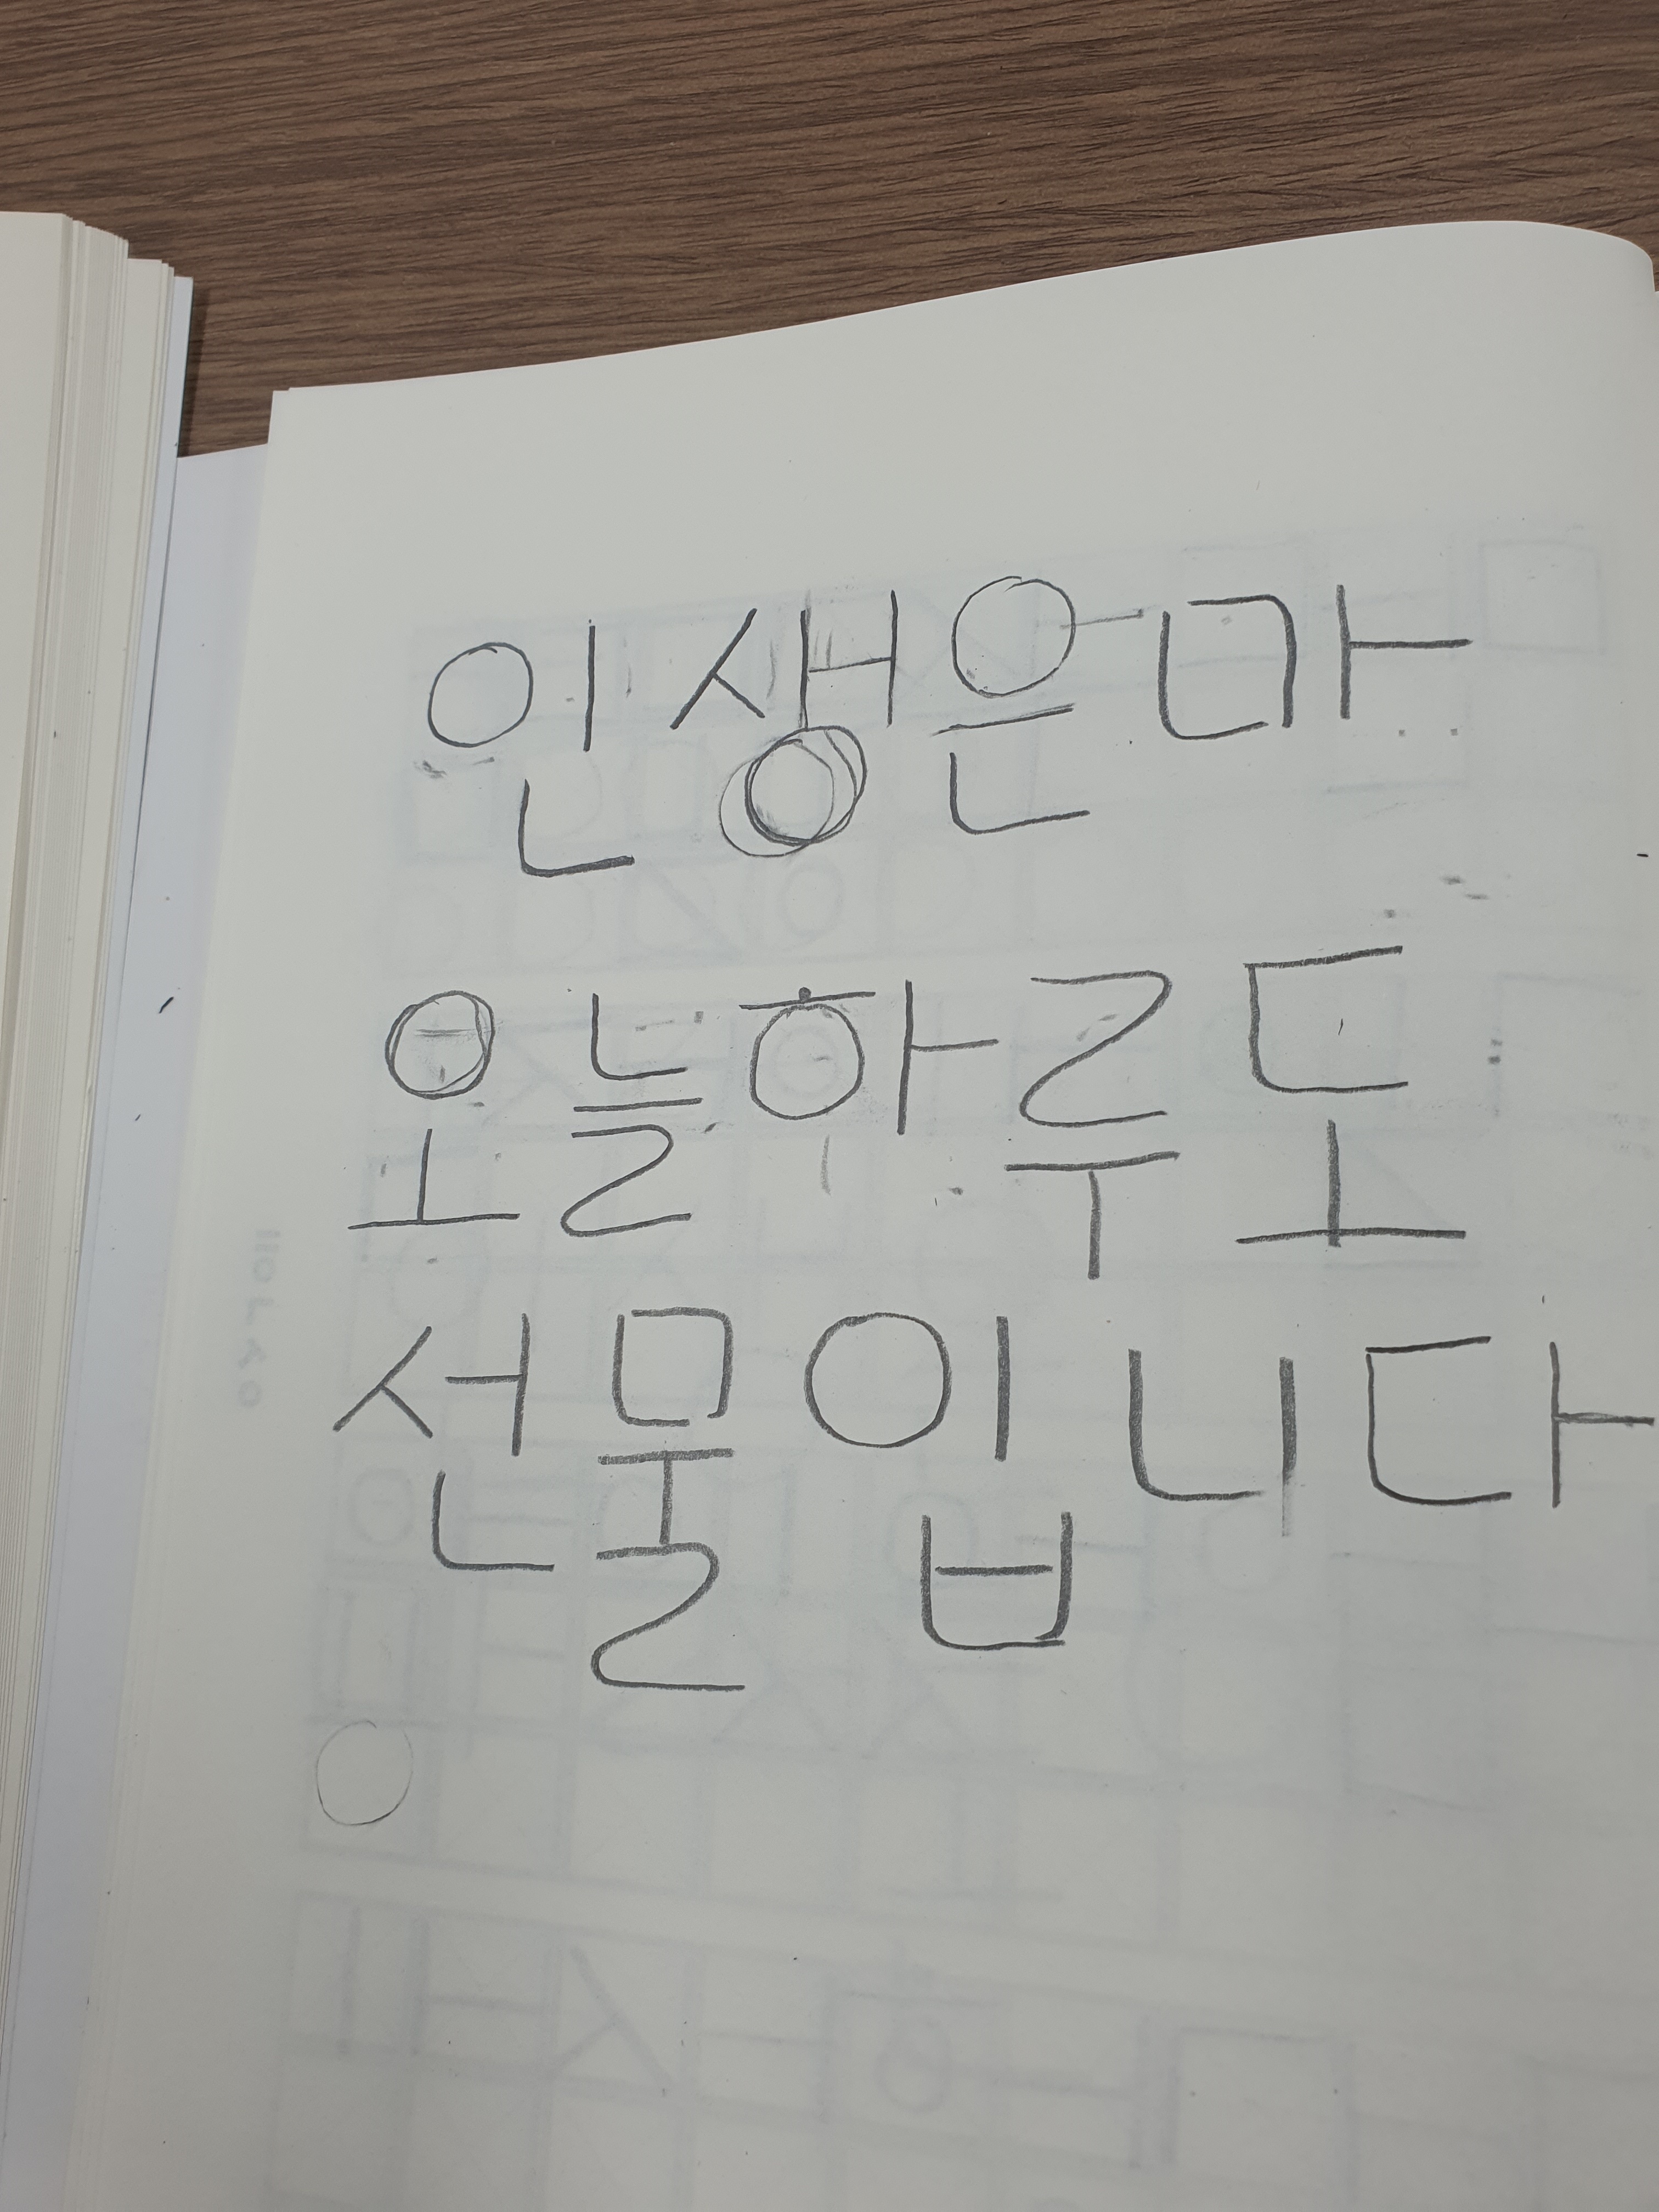 인생은마
오늘하루도
선물입니다